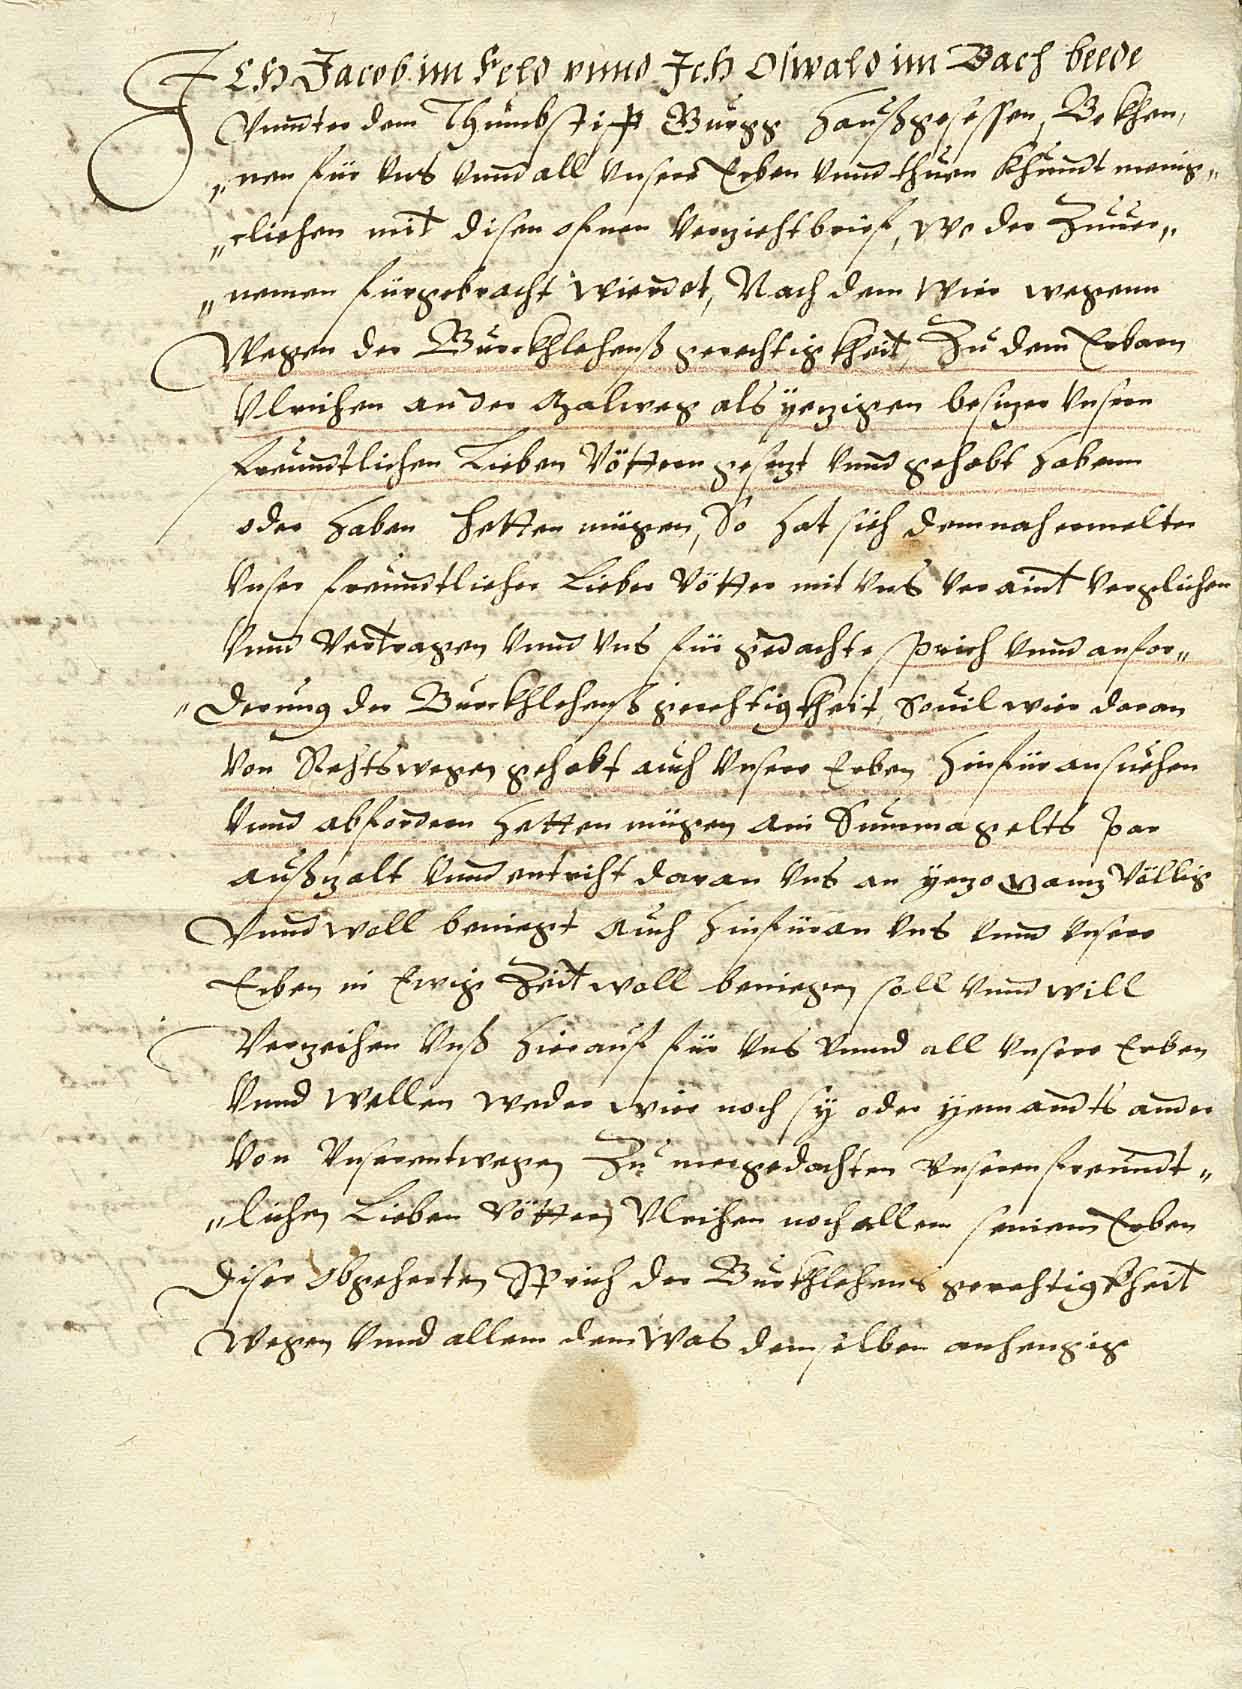 ICH Jacob im Feld vnnd Ich Oswald im Bach beede
Vnndter dem Thumbstifft Burgg haußgesessen, Bekhen,
„nen für Vns Vnnd all Vnsere Erben Vnnd thuen khundt menig„
„clichen mit disen ofnen Verzichtbrief, wo der Zuuer„
„nemen fürgebracht wierdet, Nach dem Wier wegenn
Wegen der Burckhlehenß gerechtigkheit, Zu dem Erbarn
Vlrichen an der Malweg als yezigen besizer Vnsern
freundtlichen Lieben Vöttern gesezt Vnnd gehabt habenn
oder haben hetten mügen, So hat sich demnach ermelter
Vnser freundtlicher Lieber Vötter mit Vns Veraint Verglichen
Vnnd Vertragen Vnnd Vns für gedachte sprich Vnnd anfor„
„derung der Burckhlehenß gerechtigkheit, souil wier daran
Von Rechtswegen gehabt auch Vnsere Erben hinfür ansuechen
Vnnd abfordern hetten mügen ain Summa gelts par
außzalt Vnnd entricht daran Vns an yezo ganz Völlig
Vnnd woll beniegt auch hinfüran Vns Vnnd Vnsere
Erben in Ewig Zeit woll beniegen soll Vnnd will
Verzeihen Vnß hierauf für Vns Vnnd all Vnsere Erben
Vnnd wellen weder wier noch sy oder yemandts ander
Von Vnserentwegen Zu mergedachten Vnseren freundt„
„lichen Lieben Vöttern Vlrichen noch allen seinen Erben
diser Obgeherten Sprich der Burkhlehens gerechtigkheit
wegen Vnnd allem dem Was demselben anhengig